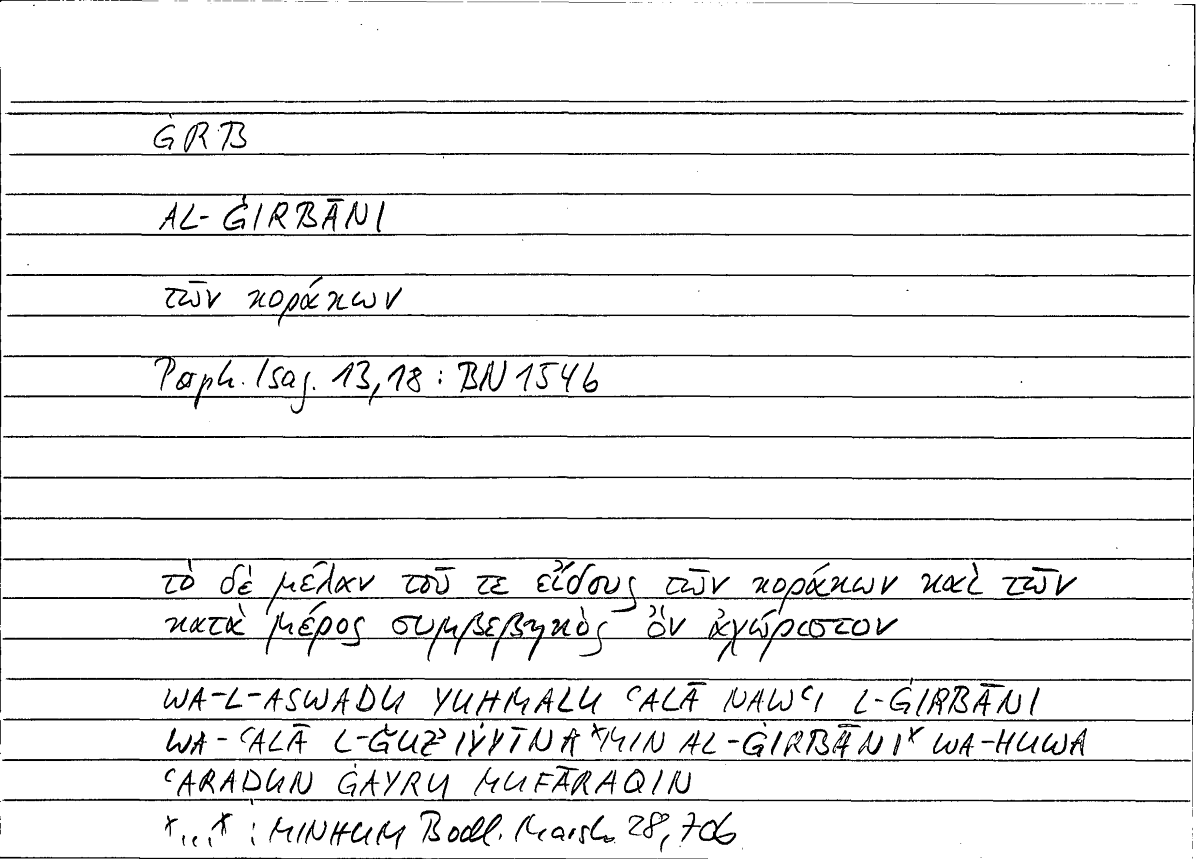 ĠRB
AL-ĠIRBĀNI
τῶν κοράκων
Porph. Isag. 13,18 : BN 154b
τὸ δὲ μέλαν τοῦ τε εἴδους τῶν κοράκων καὶ τῶν
κατὰ μέρος συμβεβηκὸς ὂν ἀχώριστον
WA-L-ASWADU YUHMALU ʿALĀ NAWʿI L-ĠIRBĀNI
WA-ʿALĀ L-ĞUZʾIYYĪNA *MIN AL-ĠIRBĀNI* WA-HUWA
ʿARADUN ĠAYRU MUFĀRAQIN
*...* : MINHUM Bodl. Marsh 28,70b